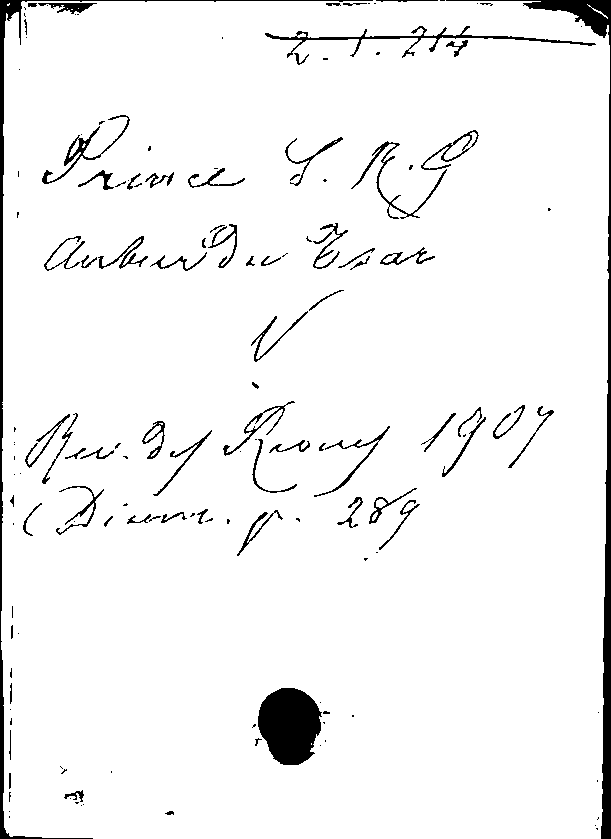 2. 1. 214
Prince S. R. G
Autour du Tsar
V
Rev. des Revues 1907
(Décem. p. 289